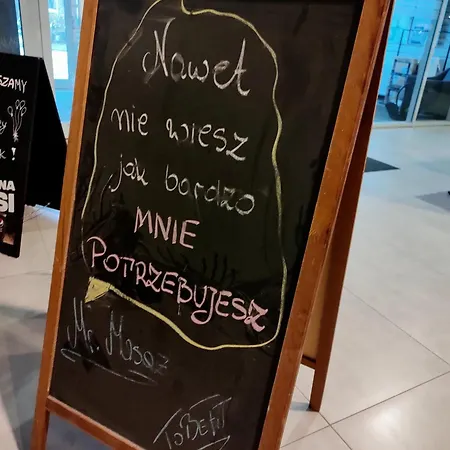 Nawet
nie wiesz
jak bardzo
MNIE
POTRZEBUJESZ
Mr. Masaż
TOBEFIT
SZAMY
K!
NA
SI